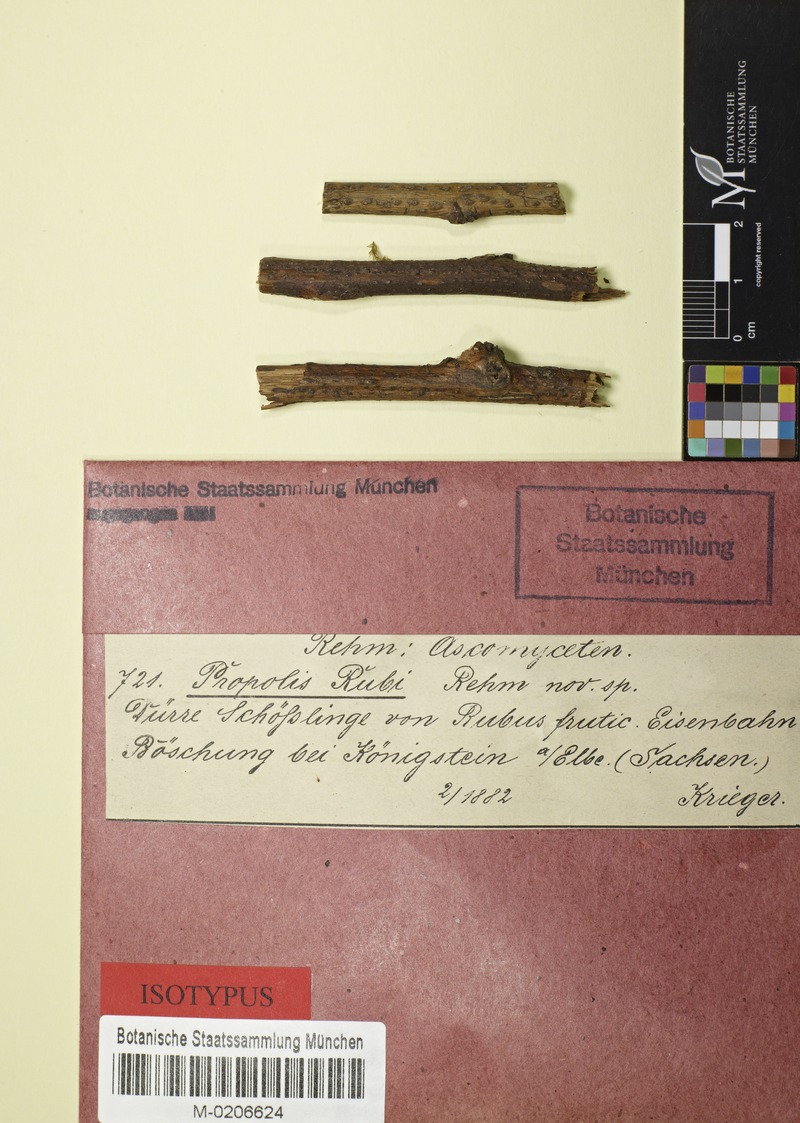 BOTANISCHE
STAATSSAMMLUNG
MÜNCHEN
copyright reserved
0 1 2
cm
Botanische Staatssammlung München
Botanische
Staatssammlung
München
Rehm: Ascomyceten.
721. Propolis Rubi Rehm nov. sp.
Dürre Schößlinge von Rubus frutic. Eisenbahn
Böschung bei Königstein a/Elbe. (Sachsen.)
2/1882 Krieger.
ISOTYPUS
Botanische Staatssammlung München
M-0206624